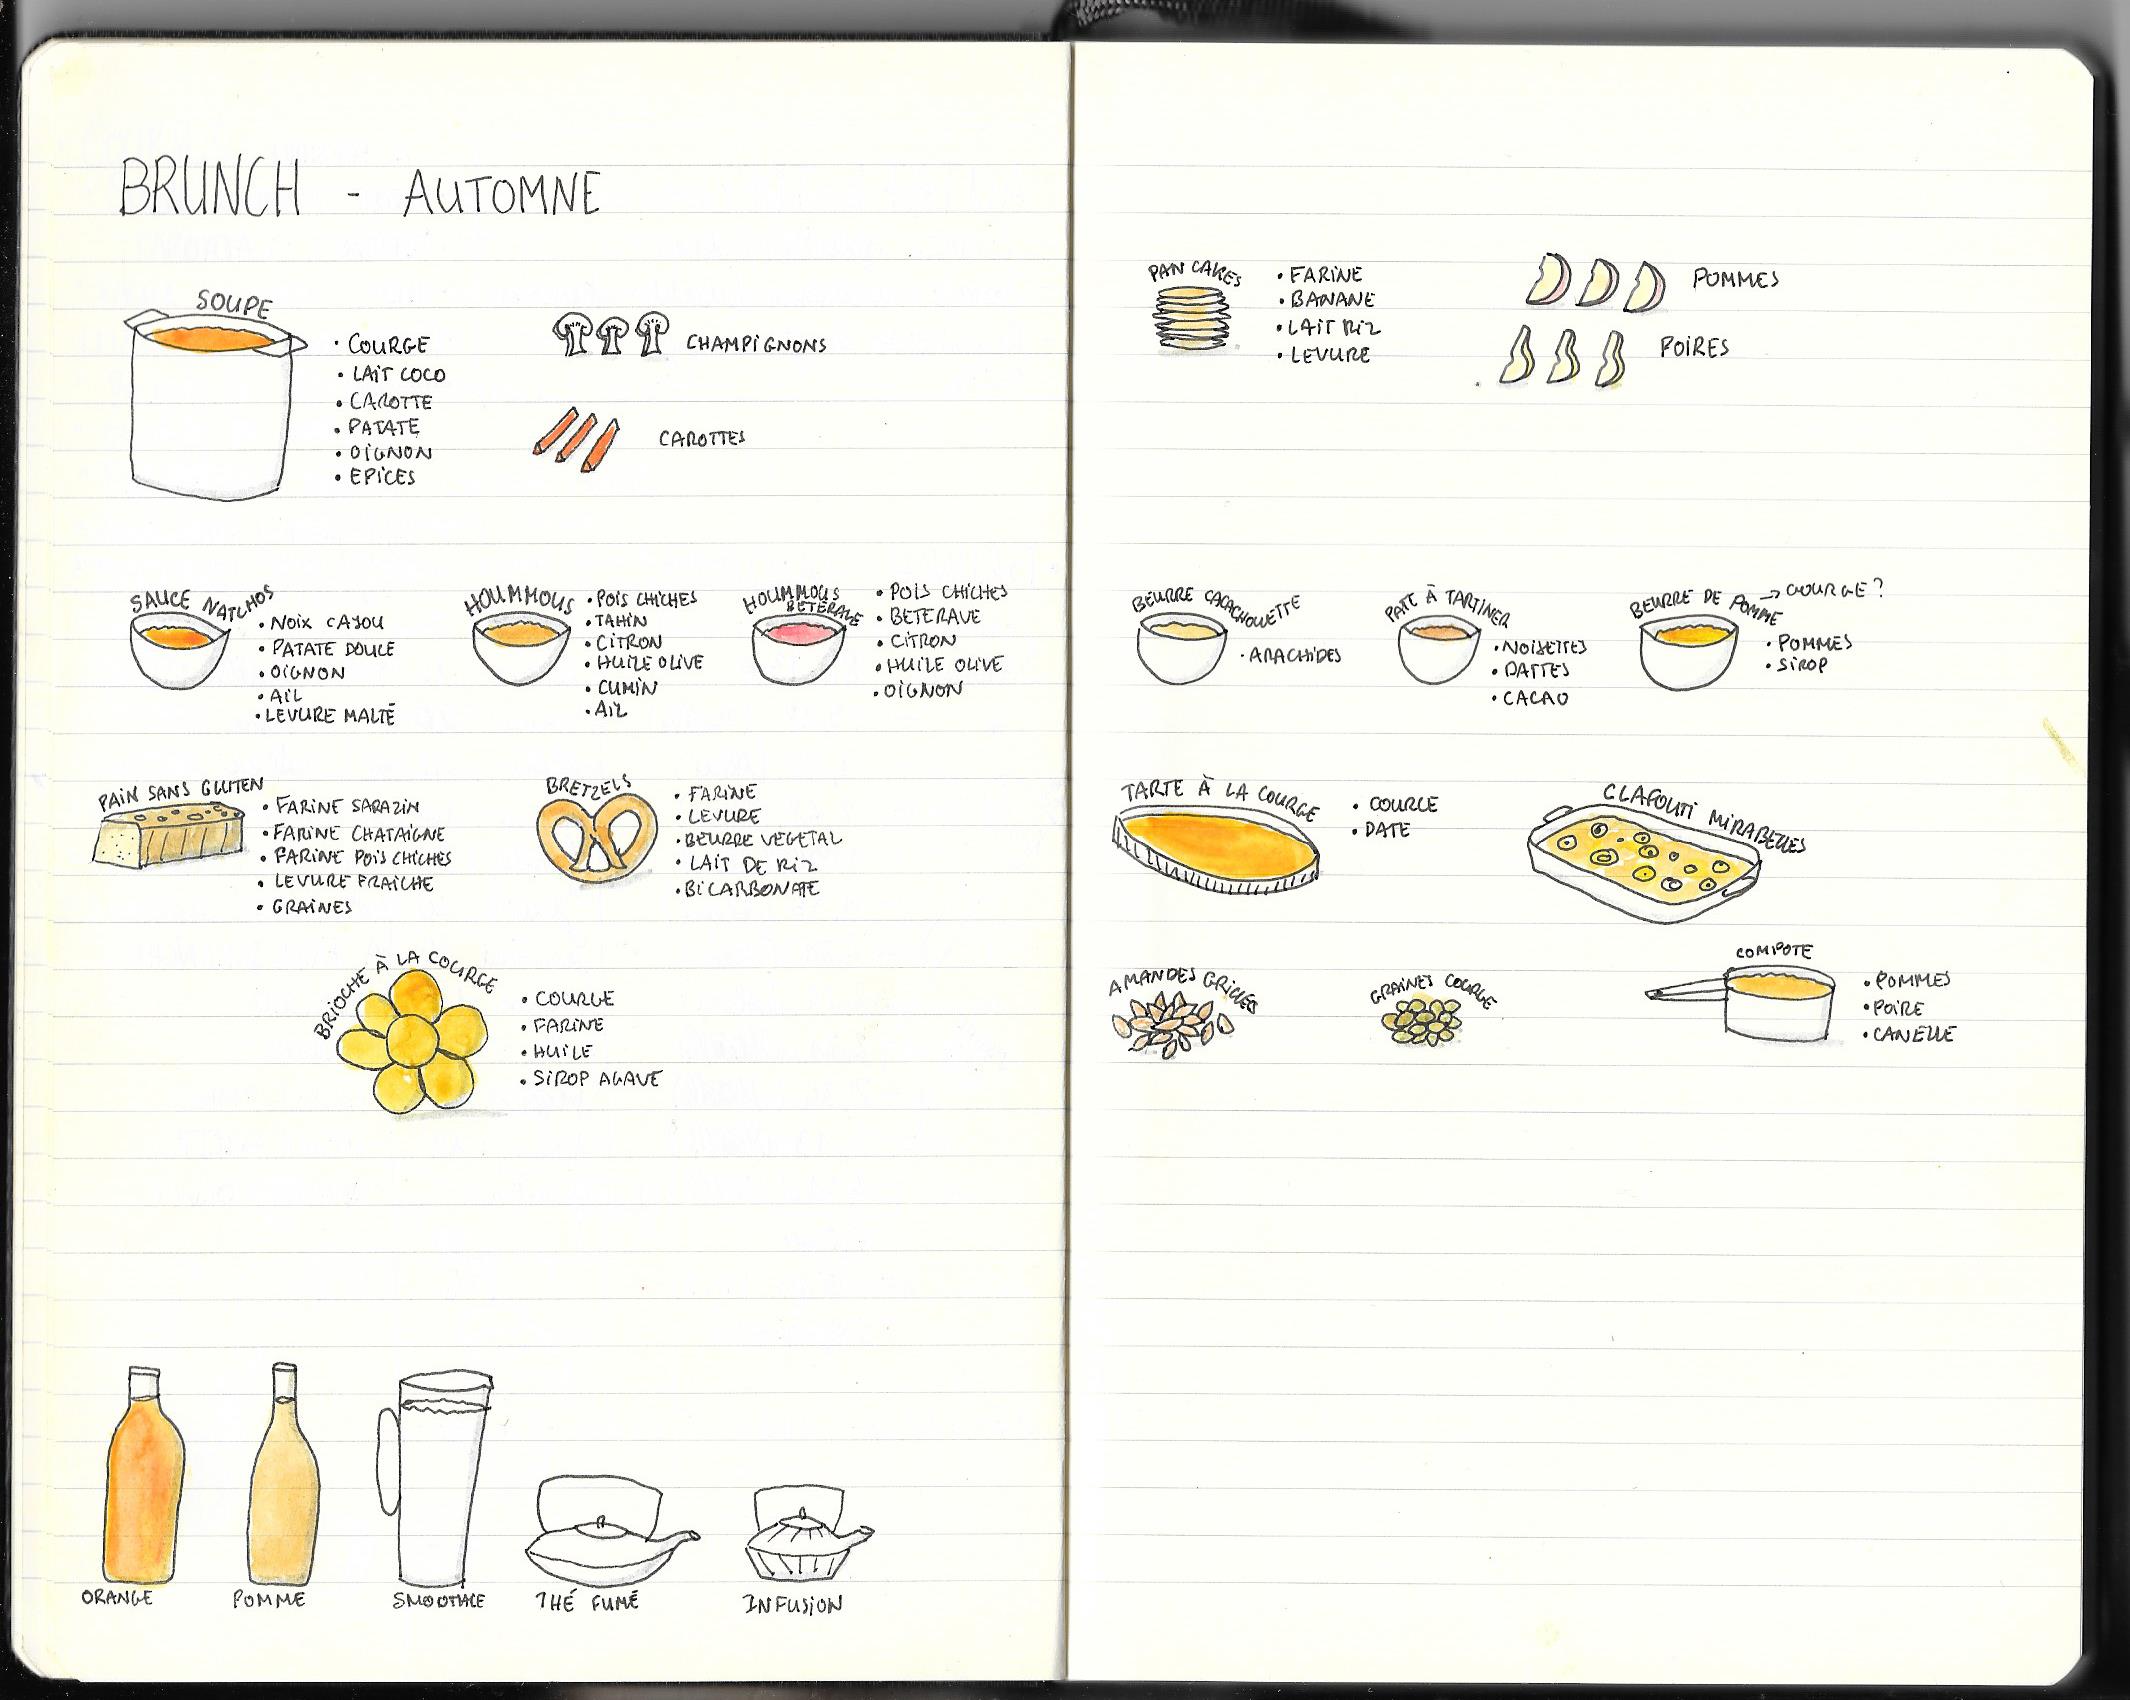 BRUNCH - AUTOMNE
SOUPE
• COURGE
• LAIT COCO
• CAROTTE
• PATATE
• OIGNON
• EPICES
CHAMPIGNONS
CAROTTES
SAUCE NATCHOS
• NOIX CAJOU
• PATATE DOUCE
• OIGNON
• AIL
• LEVURE MALTÉ
HOUMMOUS
• POIS CHICHES
• TAHIN
• CITRON
• HUILE OLIVE
• CUMIN
• AIL
HOUMMOUS
BETERAVE
• POIS CHICHES
• BETERAVE
• CITRON
• HUILE OLIVE
• OIGNON
PAIN SANS GLUTEN
• FARINE SARAZIN
• FARINE CHATAIGNE
• FARINE POIS CHICHES
• LEVURE FRAICHE
• GRAINES
BRETZELS
• FARINE
• LEVURE
• BEURRE VEGETAL
• LAIT DE RIZ
• BICARBONATE
BRIOCHE À LA COURGE
• COURGE
• FARINE
• HUILE
• SIROP AGAVE
ORANGE
POMME
SMOOTHIE
THÉ FUMÉ
INFUSION
PAN CAKES
• FARINE
• BANANE
• LAIT RIZ
• LEVURE
POMMES
POIRES
BEURRE CACACHOUETTE
• ARACHIDES
PATE À TARTINER
• NOISETTES
• DATTES
• CACAO
BEURRE DE POMME → COURGE ?
• POMMES
• SIROP
TARTE À LA COURGE
• COURGE
• DATE
CLAFOUTI MIRABELLES
AMANDES GRILLÉES
GRAINES COURGE
COMPOTE
• POMMES
• POIRE
• CANELLE